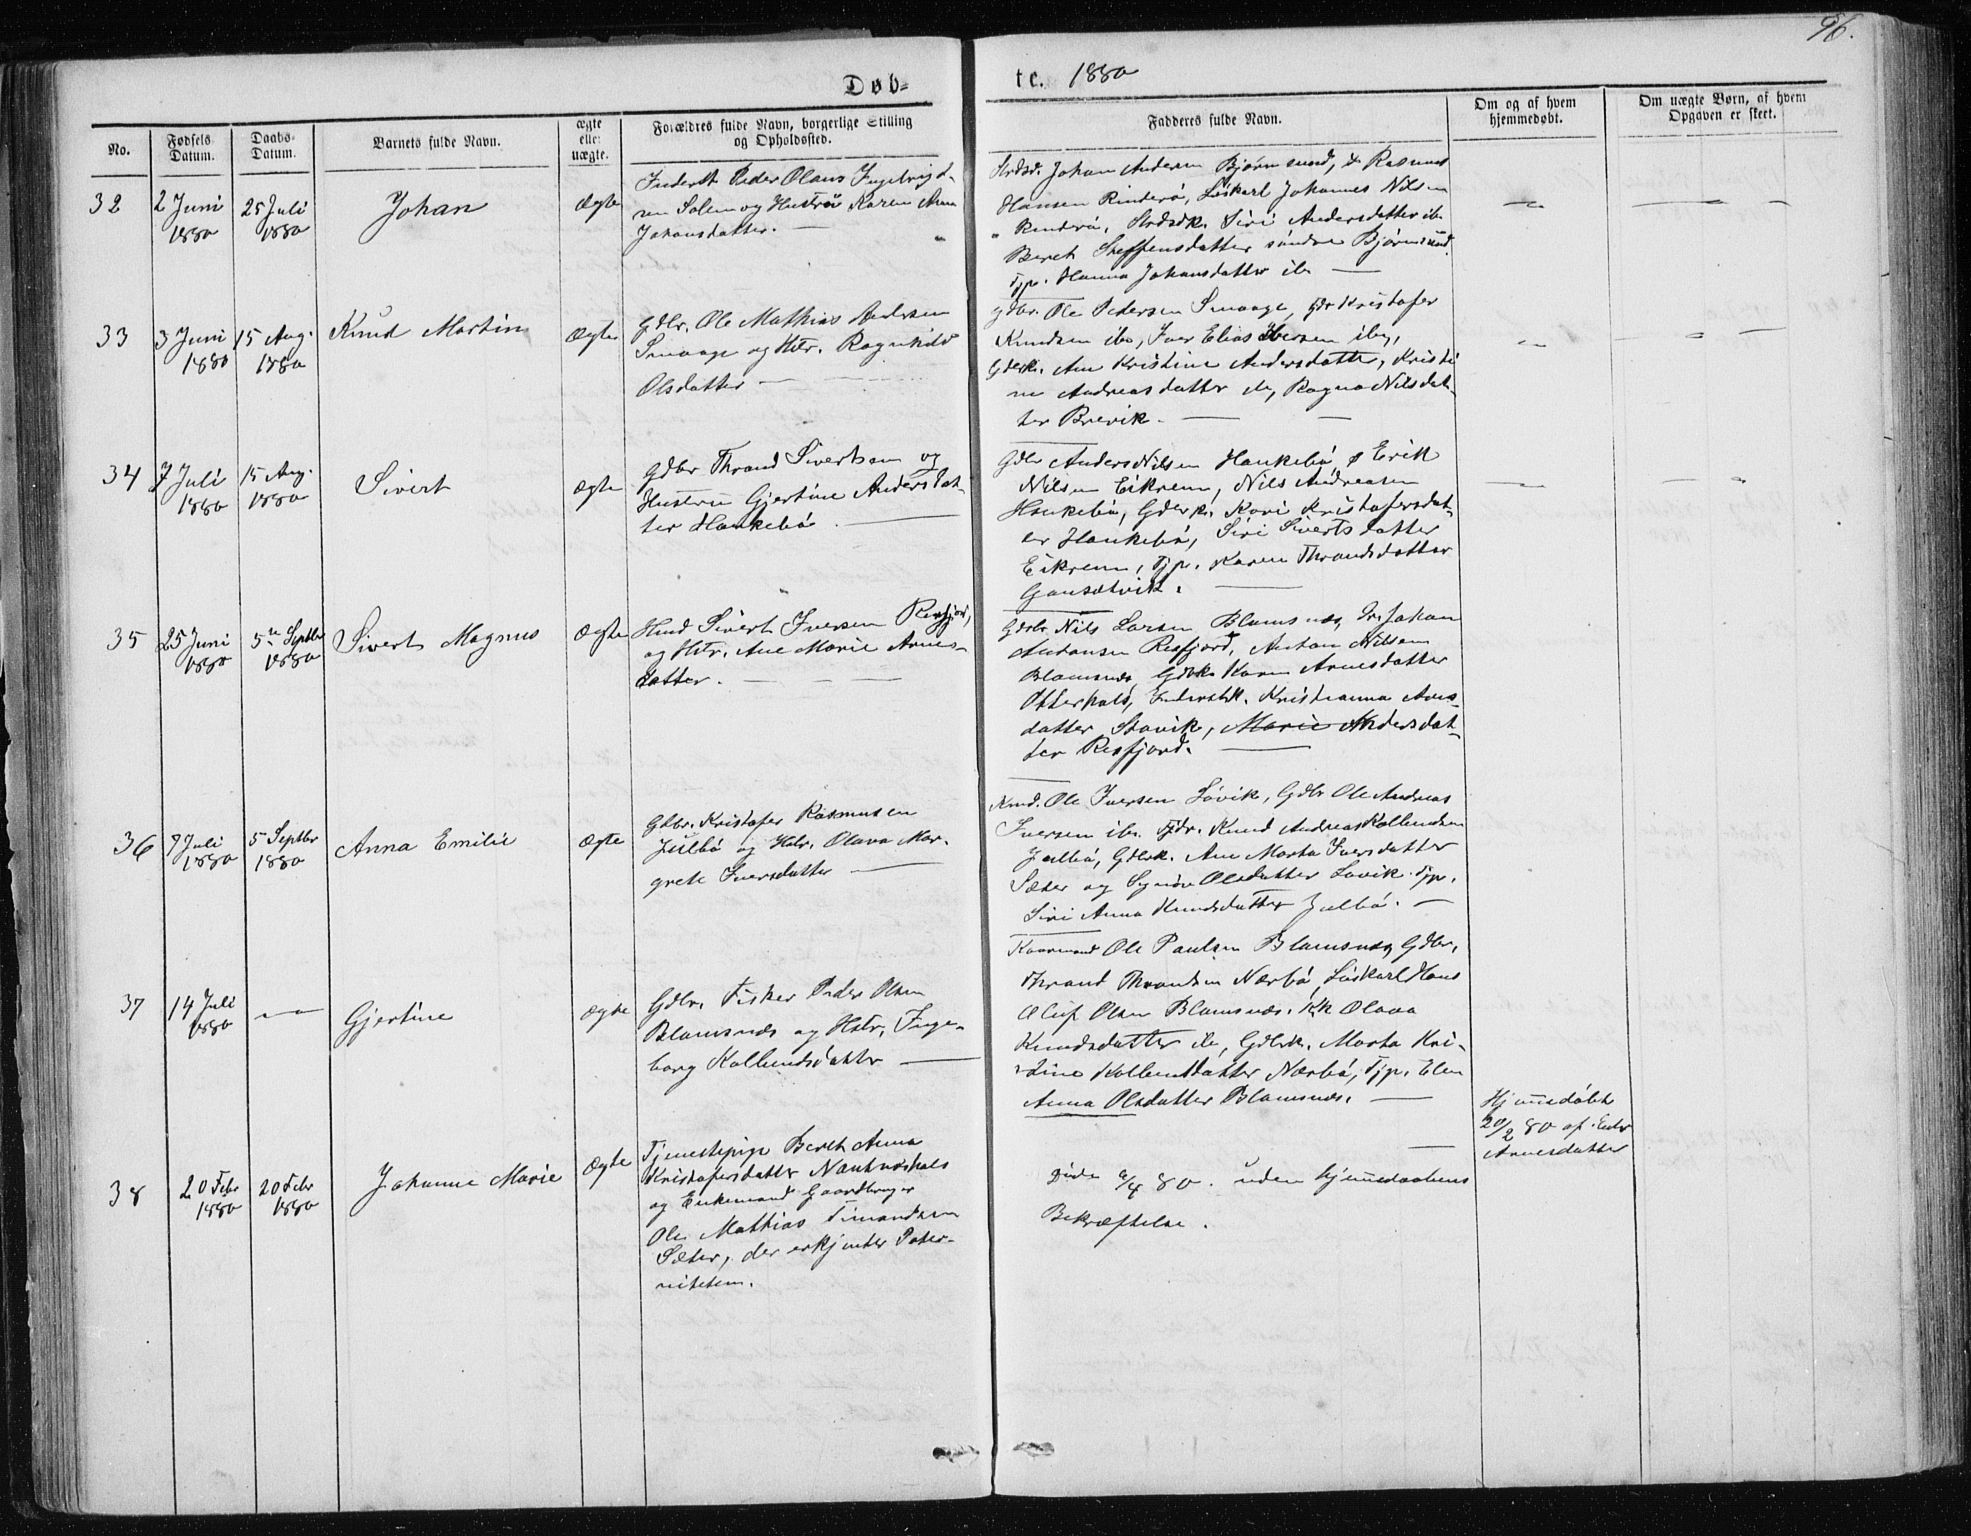 96.
Døb-
te. 1880
No.
Fødsels
Datum.
Daabs-
Datum.
Barnets fulde Navn.
ægte
eller
uægte.
Forældres fulde Navn, borgerlige Stilling
og Opholdssted.
Fadderes fulde Navn.
Om og af hvem
hjemmedøbt.
Om uægte Børn, af hvem
Opgaven er skeet.
32
2 Juni
1880
25 Juli
1880
Johan
Ægte
Inderst Peder Olaus
Solem og Hustru Karen Anna
Johansdatter.
Johan Andersen Bjørnsund, & Rasmus
Hansen Rinderø, Løskarl Johannes Nilsen
Rinderø, Siri Andersdatter ib
Beret Steffensdatter søndre Bjørnsund,
Tjp. Hanna Johansdatter ib
33
3 Juni
1880
15 Aug.
1880
Knud Martin
Ægte
Gdbr. Ole Mathias Andersen
Smaage og Hstr. Ragnhild
Olsdatter
Gdbr. Ole Pedersen Smaage, Kristofer
Knudsen ib, Iver Elias Iversen ib,
Gdbrk. Ane Kristine Andersdatter, Kristi
ne Andreasdatter ib, Ragna Nilsdat-
ter Brevik.
34
7 Juli
1880
15 Aug.
1880
Sivert
Ægte
Gdbr Thrond Sivertsen og
Hustru Gjertine Andersdat-
ter Haukebø
Gdbr Anders Nilsen Haukebø & Erik
Nilsen Eikrem, Nils Andreasen
Haukebø, Gdbrk. Kari Kristofersdat-
er Haukebø, Siri Siverts datter
Eikrem, Tjp. Karen Throndsdatter
Gansetvik.
35
25 Juni
1880
5te Septbr
1880
Sivert Magnus
Ægte
Hmd Sivert Iversen Resfjord,
og Hstr. Ane Marie Arnes-
datter.
Gdbr Nils Larsen Blamsnes, Johan
Antonsen Resfjord, Anton Nilsen
Blamsnes, Gdbrk Karen Arnesdatter
Otterhals, Kristianna Arnes-
datter Stavik, Marie Andersdat-
ter Resfjord.
36
7 Juli
1880
5 Septbr
1880
Anna Emilie
Ægte
Gdbr. Kristofer Rasmusen
Julbø og Hstr. Olava Mar-
grete Iversdatter
Kmd. Ole Iversen Løvik, Gdbr Ole Andreas
Iversen ib. Knud Andreas Kollendsen
Julbø, Gdbrk. Ane Marta Iversdatter
Sæter og Synøv Olsdatter Løvik. Tjp.
Siri Anna Knudsdatter Julbø.
37
14 Juli
1880
Gjertine
Ægte
Gdbr. Fisker Peder Olsen
Blamsnæs og Hstr. Inge-
borg Kollendsdatter
Kaarmand Ole Paulsen Blamsnes, Gdbr.
Thrond Throndsen Nærbø, Løskarl Hans
Oluf Olsen Blamsnæs. Kk Olava
Knudsdatter ib, Gdbrk. Marta Kri-
stine Kollendsdatter Nærbø, Tjp. Elen
Anna Olsdatter Blamsnæs.
38
20 Febr
1880
20 Febr
1880
Johanne Marie
Ægte
Tjenestepige Beret Anna
Kristofersdatter
og Enkemand Gaardbruger
Ole Mathias
Sæter, der erkjender Pater-
niteten.
døde 80. uden hjemmedaabens
Bekræftelse.
Hjemmedøbt
20/2 80 af
Arnesdatter